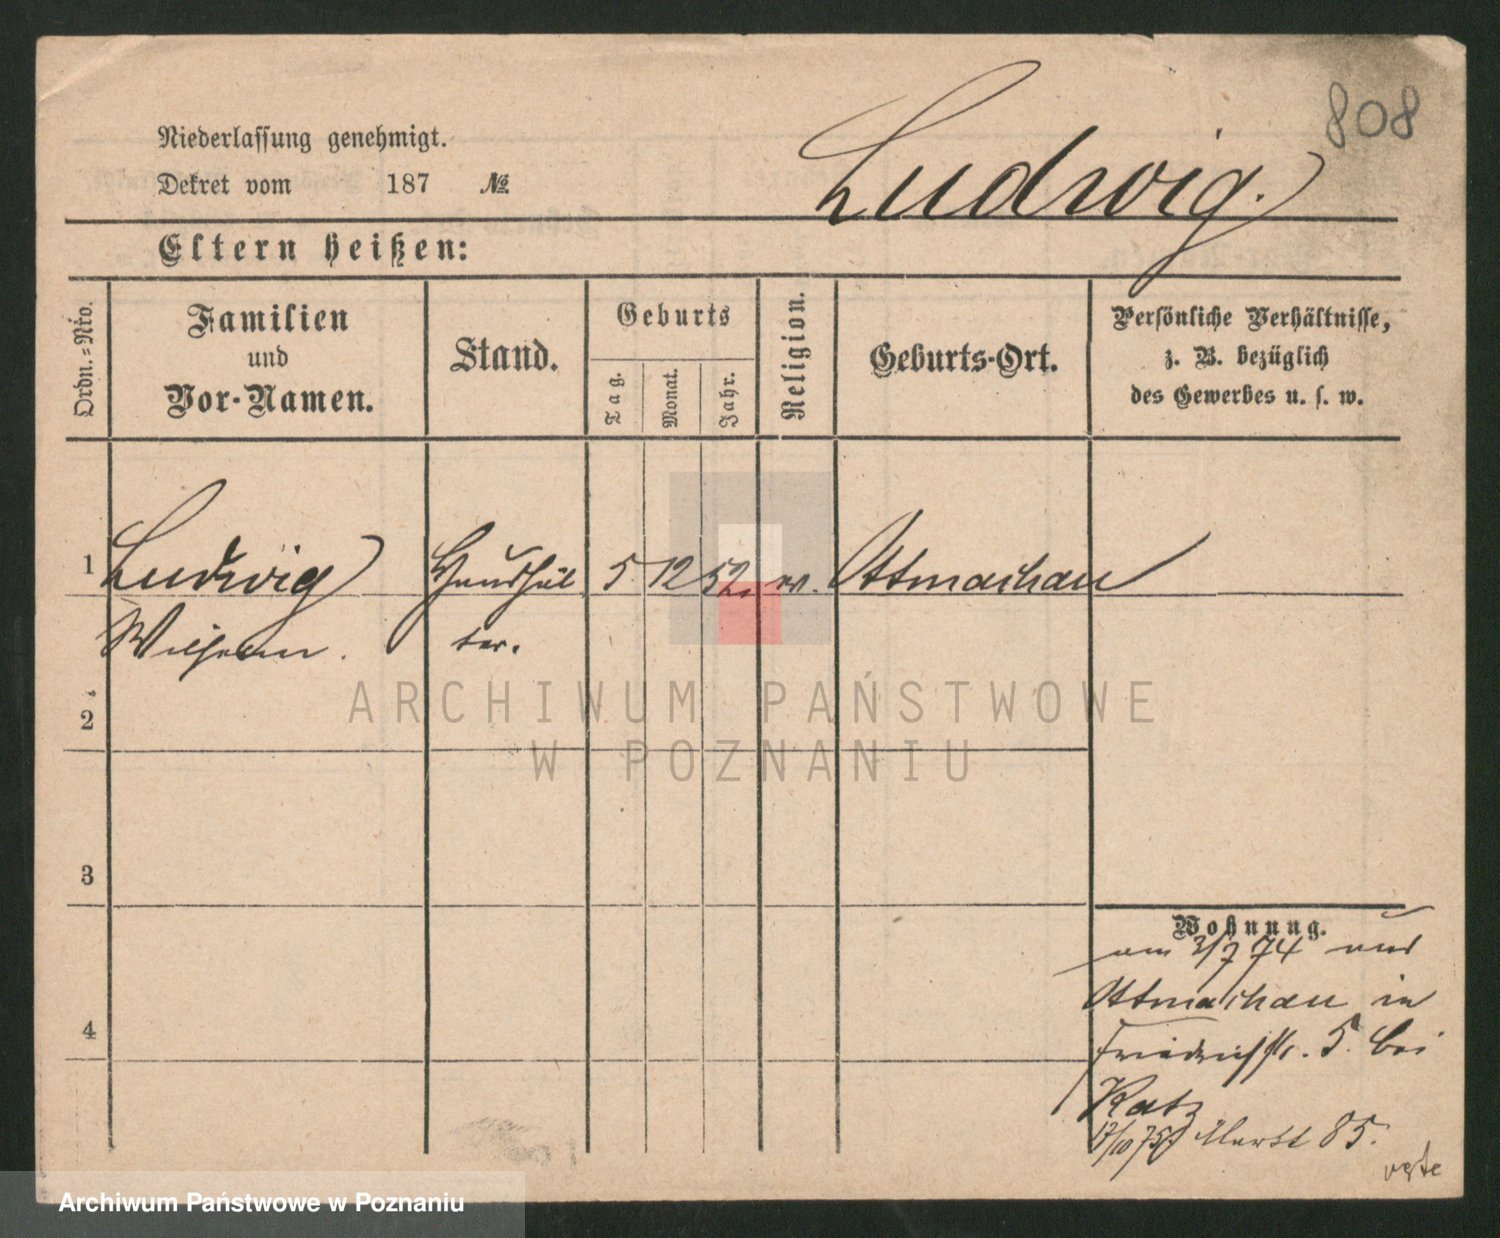 808
Niederlassung genehmigt.
Dekret vom 187 №
Ludwig.
Eltern heißen:
Ordn.=Nro.
Familien
und
Vor-Namen.
Stand.
Geburts
Tag.
Monat.
Jahr.
Religion.
Geburts-Ort.
Persönliche Verhältnisse,
z. B. bezüglich
des Gewerbes u. s. w.
1 Ludwig Haushäl 5 12 52. Ottmachau
Wilhelm. ter.
2
3
4
Wohnung.
am 3/7 74 aus
Ottmachau in
Friedrichstr. 5. bei
Katz
17/10 75 Markt 85.
verte
ARCHIWUM PAŃSTWOWE
W POZNANIU
Archiwum Państwowe w Poznaniu